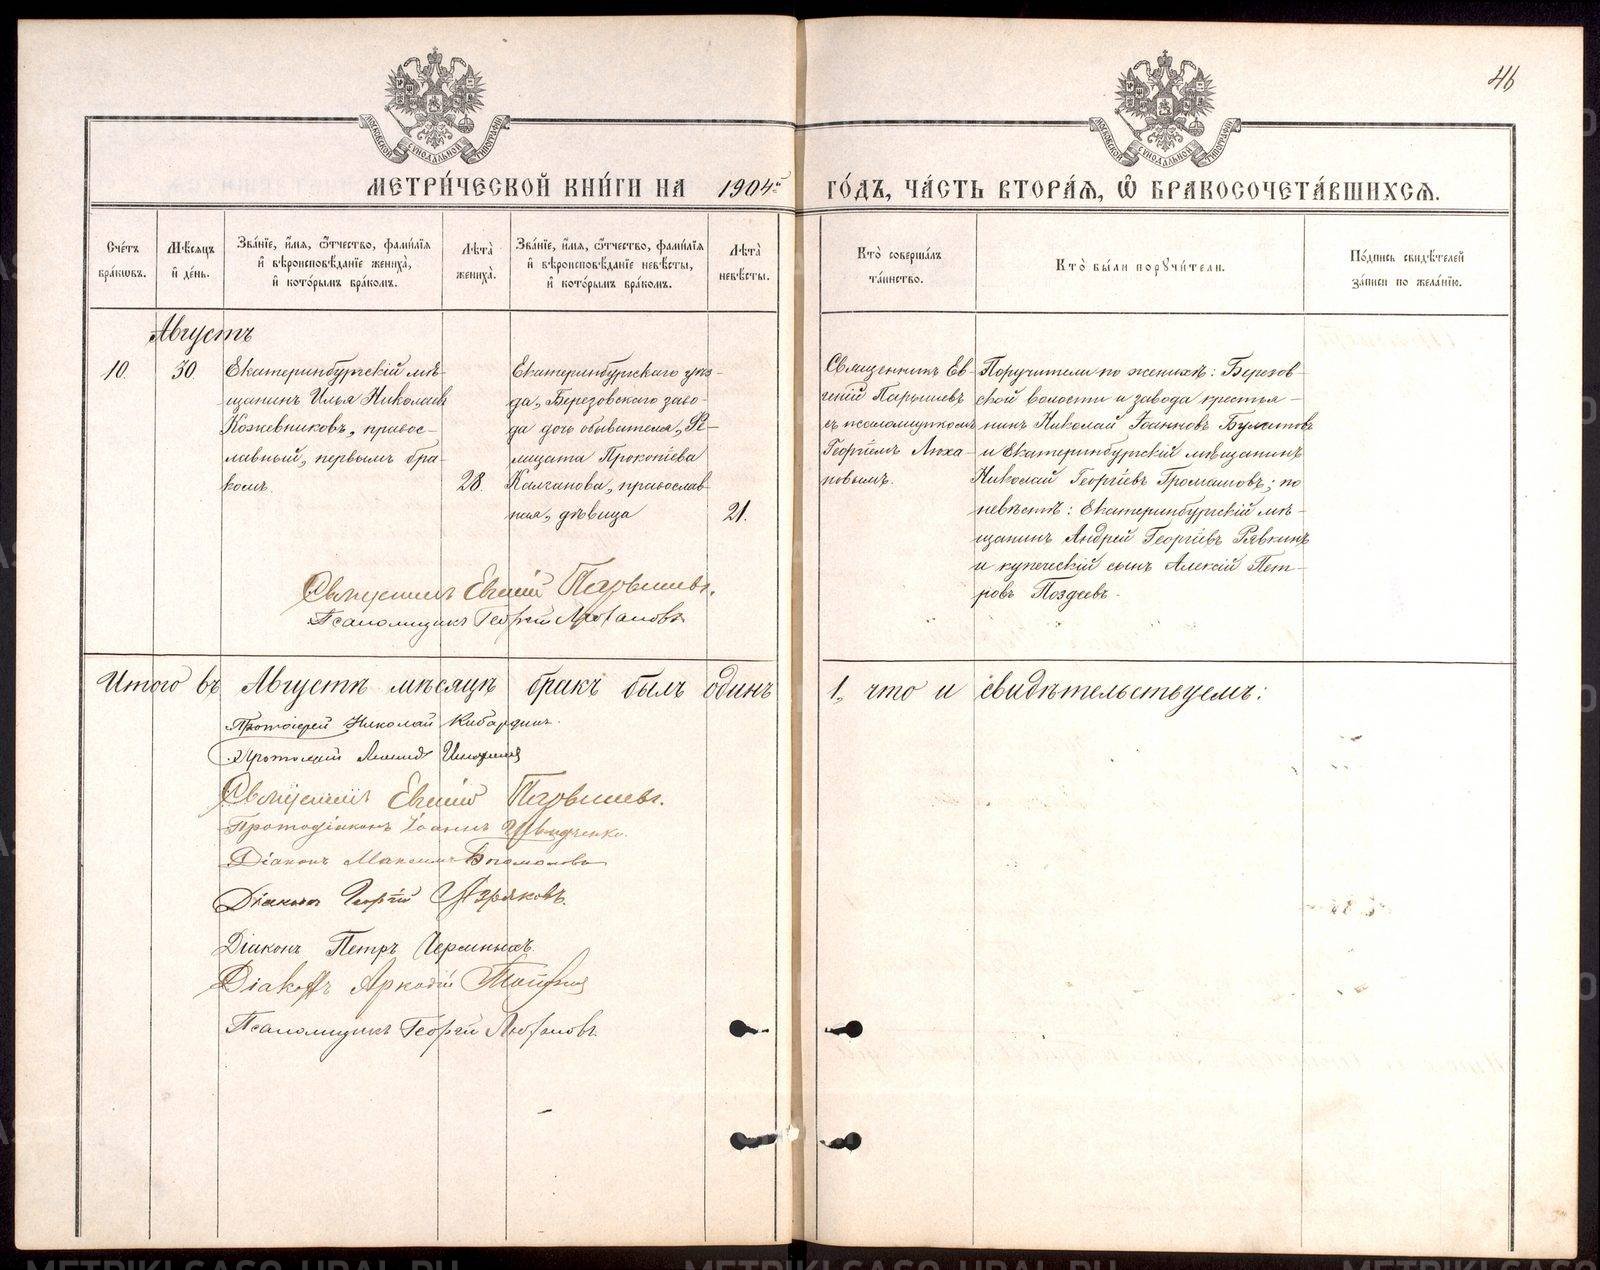 46
МОСКОВСКОЙ СѴНОДАЛЬНОЙ ТИПОГРАФІИ
МОСКОВСКОЙ СѴНОДАЛЬНОЙ ТИПОГРАФІИ
МЕТРИ́ЧЕСКОЙ КНИ́ГИ НА 1904й ГО́ДЪ, ЧА́СТЬ ВТОРА́Я, Ѿ БРАКОСОЧЕТА́ВШИХСЯ.
Сче́тъ бра́кѡвъ.
Мѣ́сяцъ и҆ де́нь.
Зва́нїе, и҆́мя, ѻ҆́тчество, фами́лїя и҆ вѣроисповѣ́данїе жениха̀, и҆ кото́рымъ бра́комъ.
Лѣ́та жениха̀.
Зва́нїе, и҆́мя, ѻ҆́тчество, фами́лїя и҆ вѣроисповѣ́данїе невѣ́сты, и҆ кото́рымъ бра́комъ.
Лѣ́та невѣ́сты.
Кто̀ соверша́лъ та́инство.
Кто̀ бы́ли поручи́тели.
По́дпись свидѣ́телей за́писи по жела́нїю.
Августъ
10.
30.
Екатеринбургскій мѣ-
щанинъ Илья Николаевъ
Кожевниковъ, правос-
лавный, первымъ бра-
комъ.
28.
Екатеринбургскаго уѣз-
да, Березовскаго заво-
да дочь обывателя, Ѳ-
Прокопіева
Калганова, православ-
ная, дѣвица
21.
Священникъ Ев-
геній Парышевъ
съ псаломщикомъ
Георгіемъ Люха-
новымъ.
Поручители по женихѣ: Березов-
ской волости и завода крестья-
нинъ Николай Іоанновъ Булатовъ
и Екатеринбургскій мѣщанинъ
Николай Георгіевъ Громановъ; по
невѣстѣ: Екатеринбургскій мѣ-
щанинъ Андрей Георгіевъ Рявкинъ
и купеческій сынъ Алексѣй Пет-
ровъ Поздеевъ.
Священникъ Евгеній Парышевъ.
Псаломщикъ Георгій Люхановъ
Итого въ Августѣ мѣсяцѣ бракъ былъ одинъ 1, что и свидѣтельствуемъ:
Протоіерей Николай Кибардинъ.
Священникъ Евгеній Парышевъ.
Протодіаконъ Іоаннъ
Діаконъ Максимъ Богомоловъ
Діаконъ Георгій
Діаконъ Петръ
Діаконъ Аркадій
Псаломщикъ Георгій Люхановъ.
METRIKI.GASO-URAL.RU
METRIKI.GASO-URAL.RU